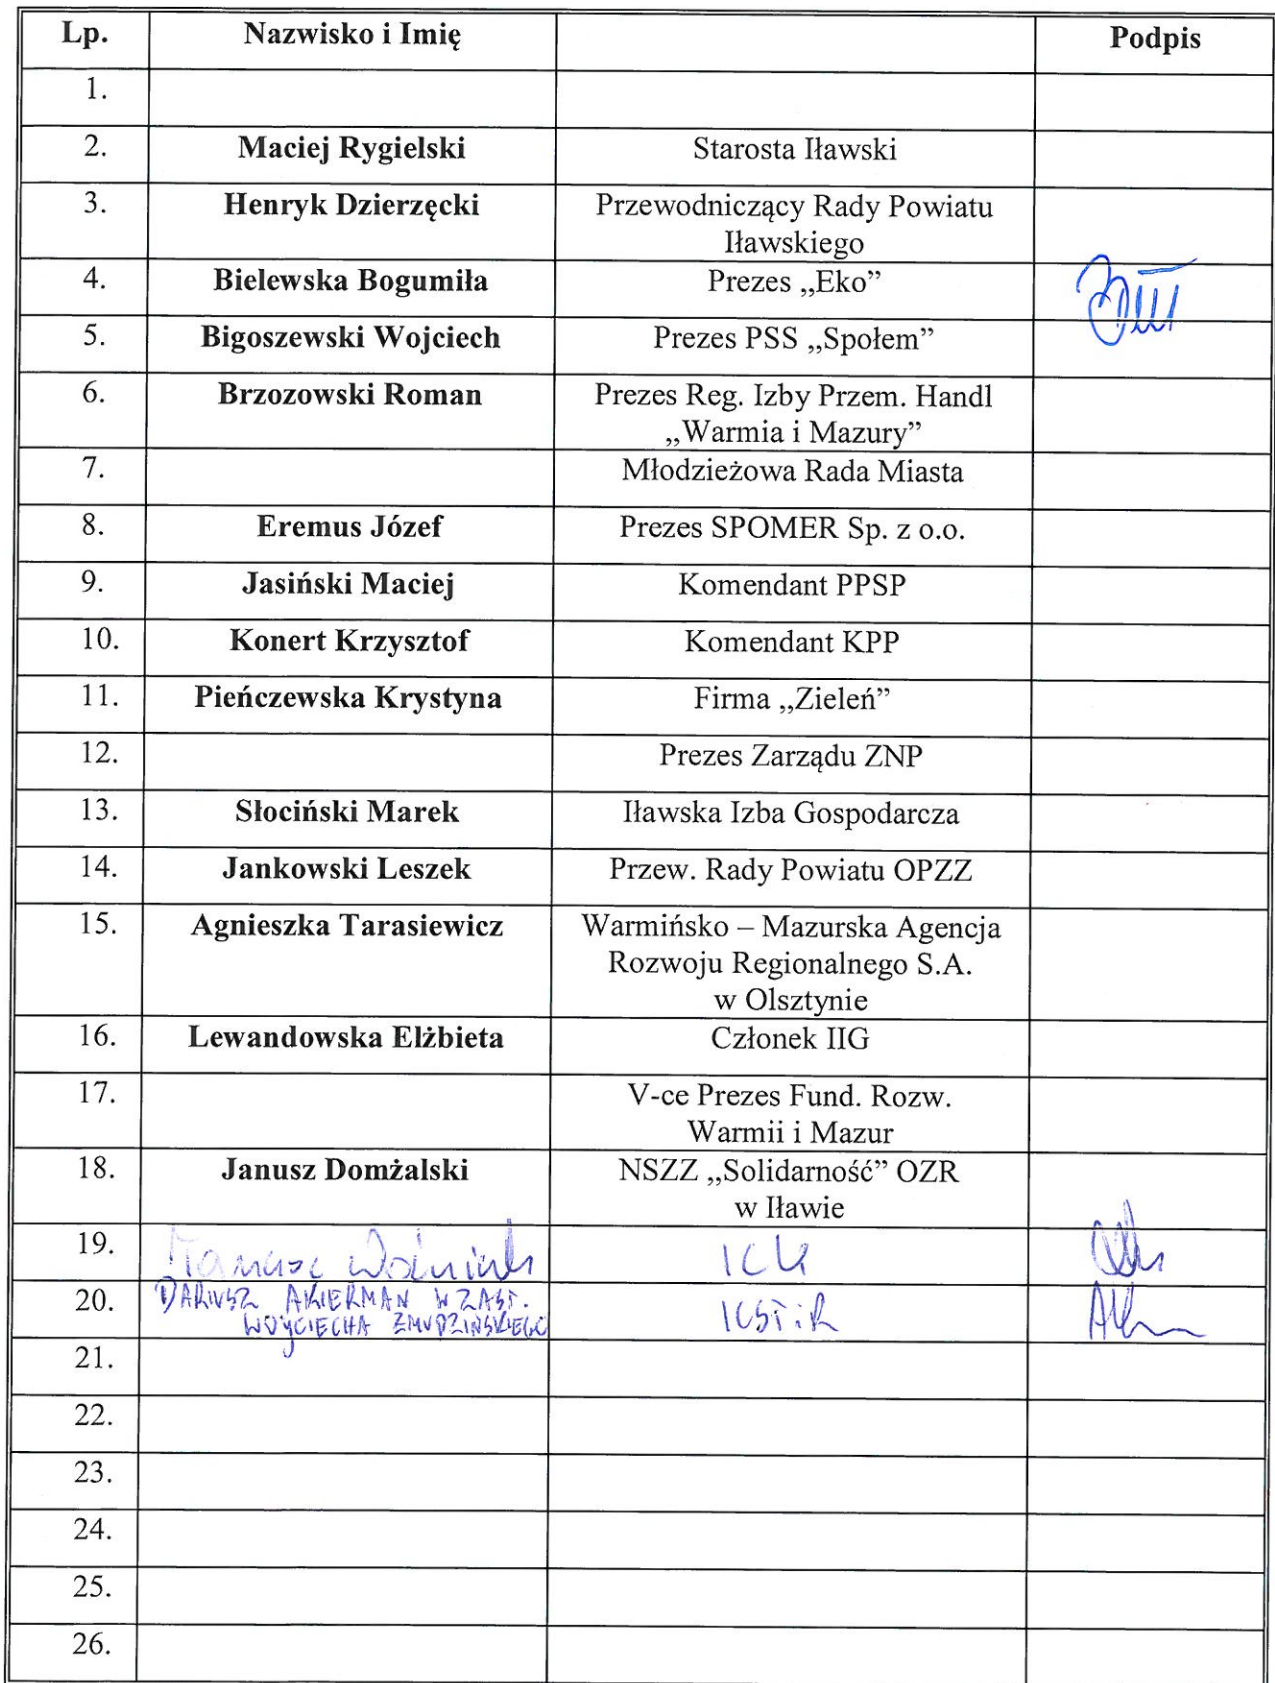 Lp. Nazwisko i Imię Podpis
1.
2. Maciej Rygielski Starosta Iławski
3. Henryk Dzierzęcki Przewodniczący Rady Powiatu
Iławskiego
4. Bielewska Bogumiła Prezes „Eko”
5. Bigoszewski Wojciech Prezes PSS „Społem”
6. Brzozowski Roman Prezes Reg. Izby Przem. Handl
„Warmia i Mazury”
7. Młodzieżowa Rada Miasta
8. Eremus Józef Prezes SPOMER Sp. z o.o.
9. Jasiński Maciej Komendant PPSP
10. Konert Krzysztof Komendant KPP
11. Pieńczewska Krystyna Firma „Zieleń”
12. Prezes Zarządu ZNP
13. Słociński Marek Iławska Izba Gospodarcza
14. Jankowski Leszek Przew. Rady Powiatu OPZZ
15. Agnieszka Tarasiewicz Warmińsko – Mazurska Agencja
Rozwoju Regionalnego S.A.
w Olsztynie
16. Lewandowska Elżbieta Członek IIG
17. V-ce Prezes Fund. Rozw.
Warmii i Mazur
18. Janusz Domżalski NSZZ „Solidarność” OZR
w Iławie
19. ICK
20. DARIUSZ AKIERMAN W ZAST. ICSTiR
WOJCIECHA ŻMUDZIŃSKIEGO
21.
22.
23.
24.
25.
26.